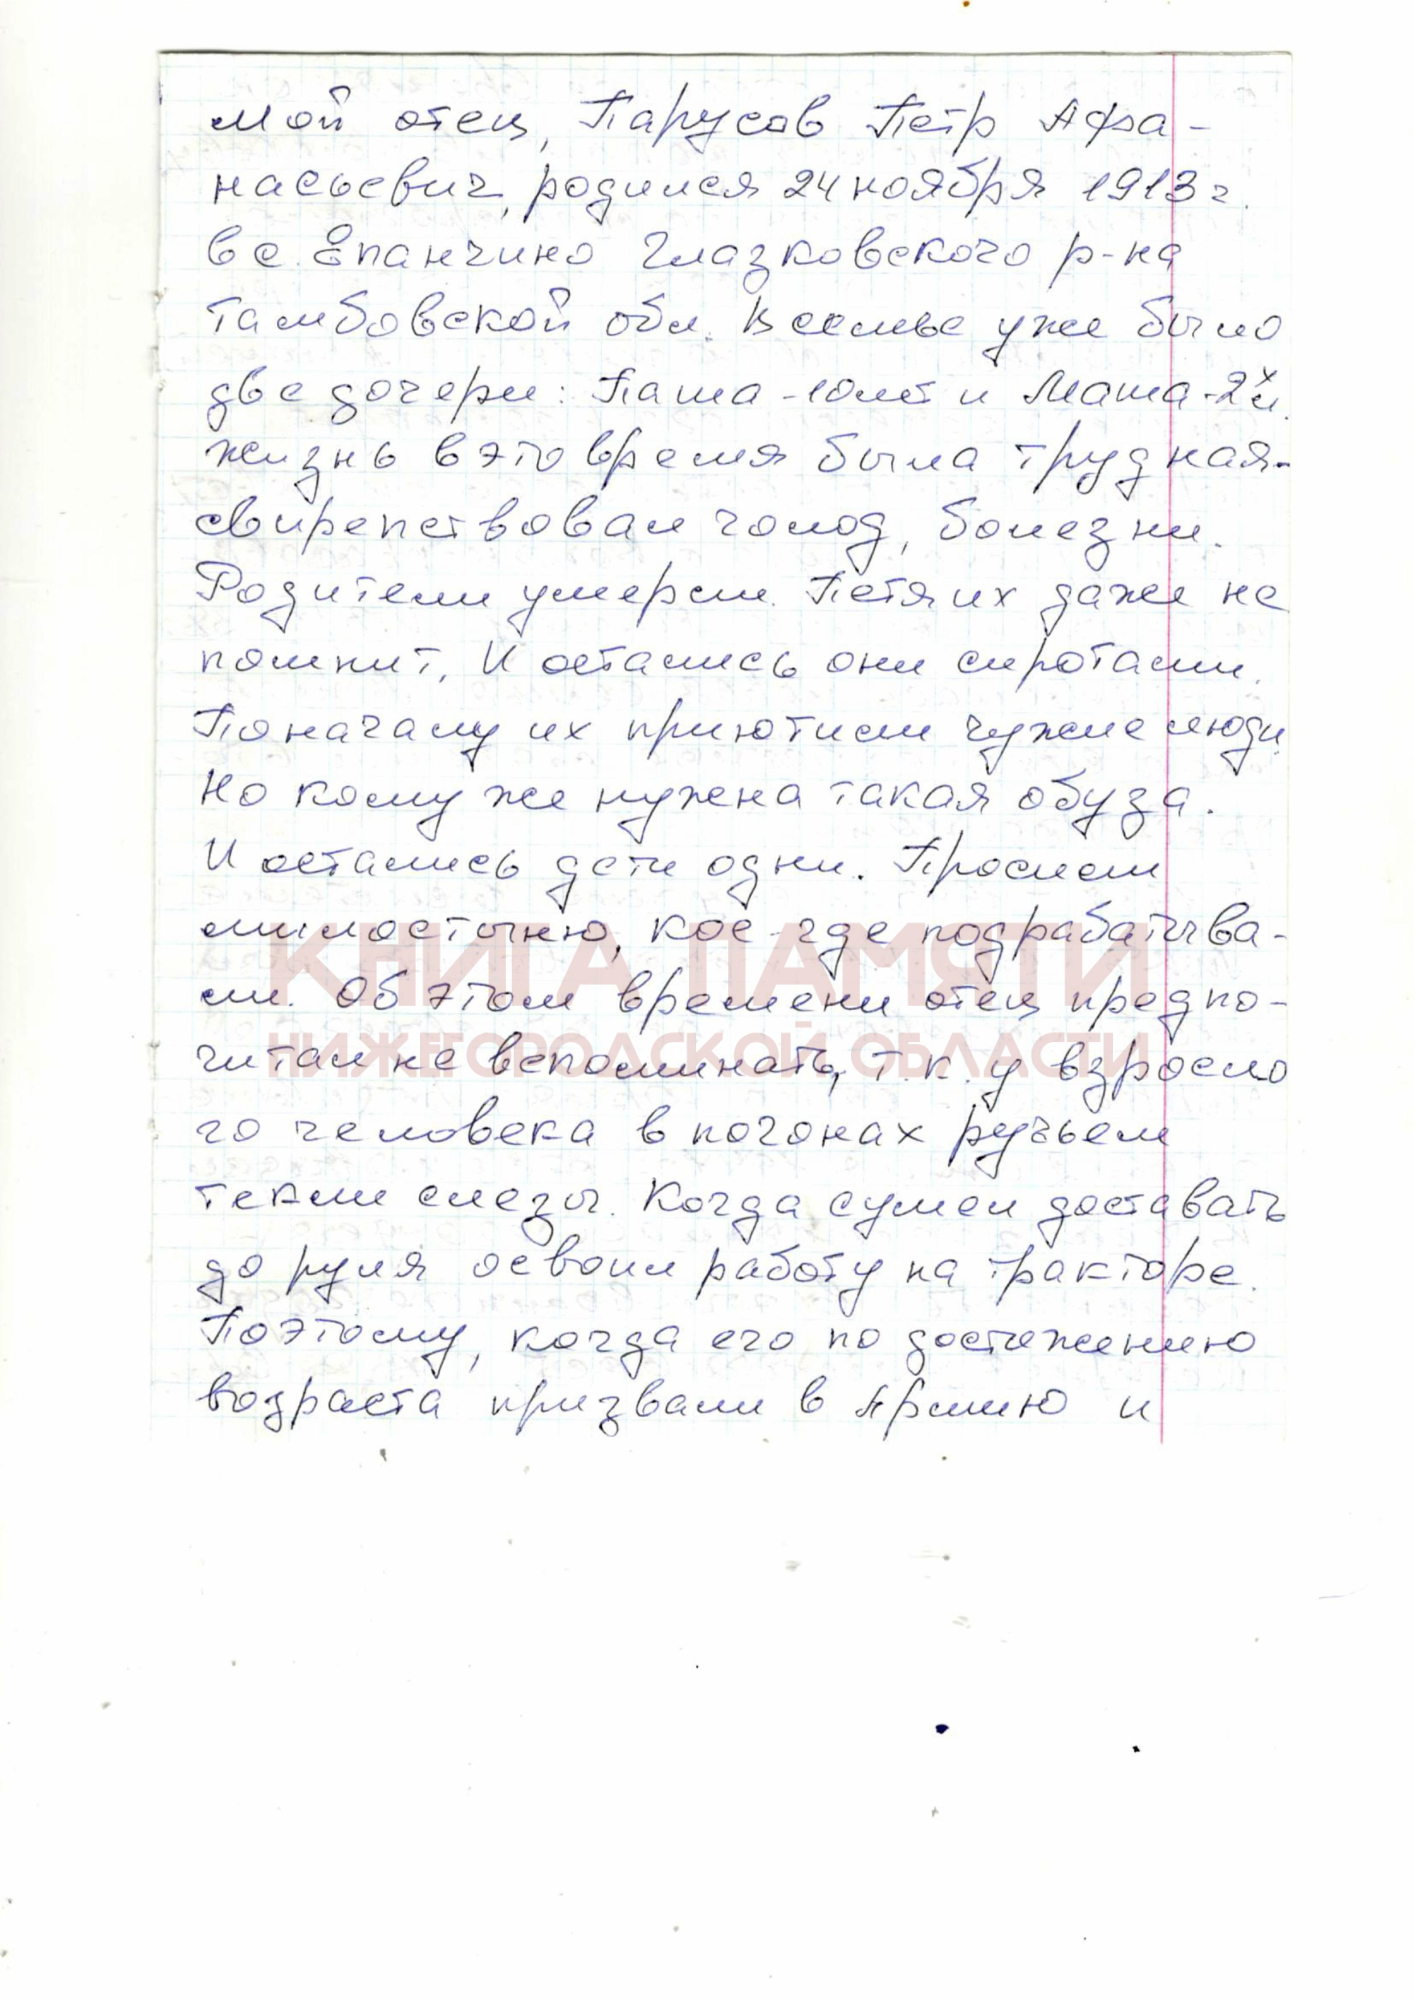 Мой отец, Парусов Петр Афа-
насьевич, родился 24 ноября 1913 г.
в с. Епанчино Глазковского р-на
Тамбовской обл. В семье уже было
две дочери: Паша - 10 лет и Маша - 2х л.
жизнь в это время была трудная -
свирепствовал голод, болезни.
Родители умерли. Петя их даже не
помнит. И остались они сиротами.
Поначалу их приютили чужие люди
Но кому же нужна такая обуза.
И остались дети одни. Просили
милостыню, кое-где подрабатыва-
ли. Об этом времени отец предпо-
читал не вспоминать, т.к. у взросло
го человека в погонах ручьем
текли слезы. Когда сумел доставать
до руля освоил работу на тракторе.
Поэтому, когда его по достижению
возраста призвали в Армию и
КНИГА ПАМЯТИ
НИЖЕГОРОДСКОЙ ОБЛАСТИ